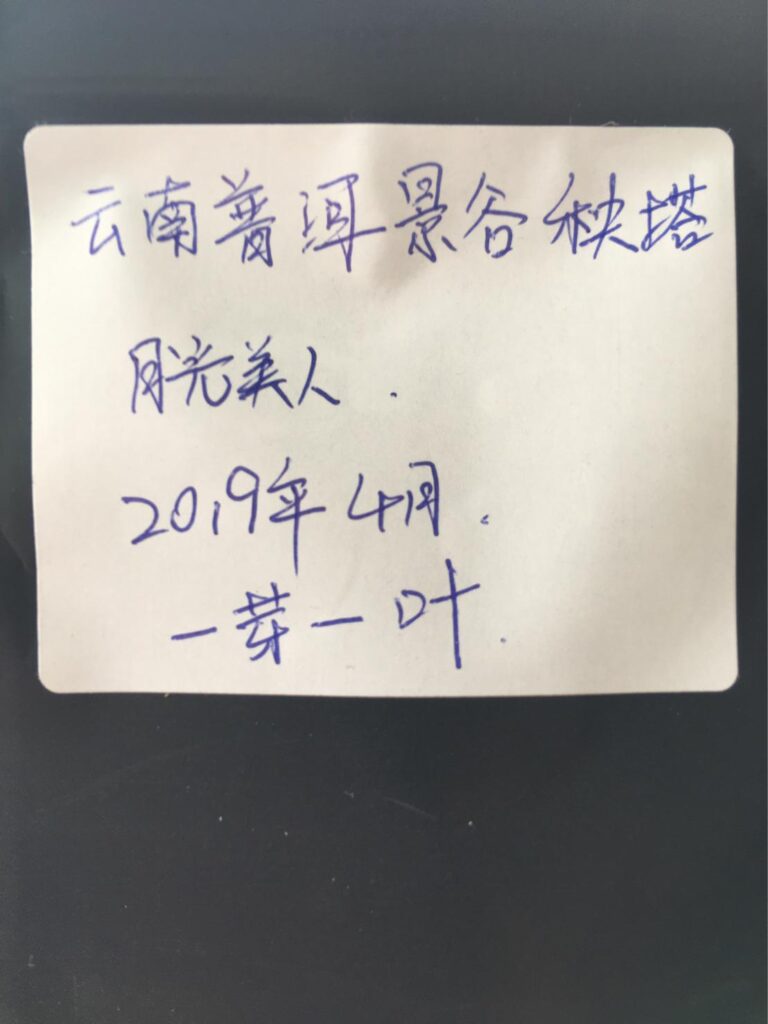 云南普洱景谷秧塔
月光美人.
2019年4月.
一芽一叶.